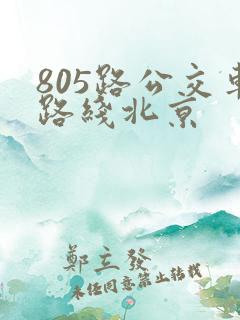 805路公交車
路綫北京
鄭立發
未任同意禁止转载